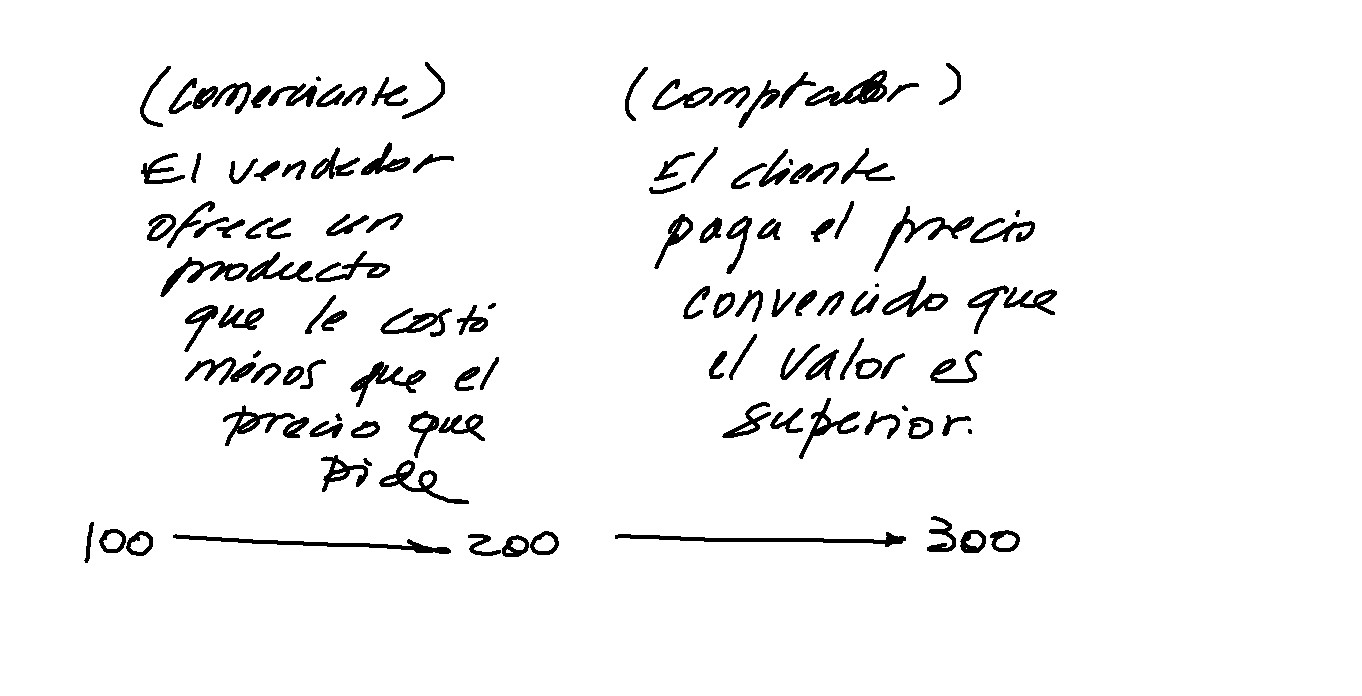 (comerciante)
El vendedor
ofrece un
producto
que le costó
ménos que el
precio que
pide
(comprador)
El cliente
paga el precio
convenido que
el valor es
superior.
100 → 200 → 300